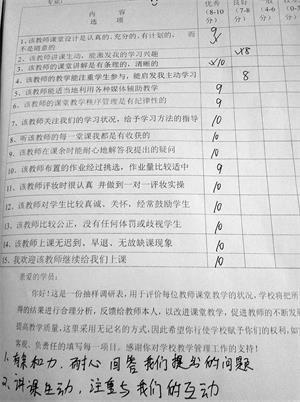 内 容
选 项
优秀
(8-10
分)
良好
(7-8
分)
(4-6
分)
1、该教师课堂设计是认真的、充分的、有计划的, 而
不是随意的
9
2、该教师讲课生动、能激发我的学习兴趣
8
3、该教师的课堂讲解是有条理的、清晰的
10
4、该教师的教学能注重学生参与,能启发我主动学习
8
5、该教师能适当地利用各种媒体辅助教学
9
6、该教师的课堂教学秩序管理是有纪律性的
9
7、该教师关注我们的学习状况,给予学习方法的指导
10
8、听该教师的每一堂课我都是有收获的
10
9、该教师在课余时能耐心地解答我提出的疑问
10
10、该教师布置的作业经过挑选,作业量比较适中
9
11、该教师评妆时很认真 并做到一对一评妆实操
10
12、该教师对学生比较真诚、关怀,经常鼓励学生
10
13、该教师比较公正,没有任体罚或歧视学生
10
14、该教师上课无迟到、早退、无放缺课现象
10
15、我欢迎该教师继续给我们上课
10
亲爱的学员:
你好!这是一份抽样调研表,用于评价每位教师课堂教学的状况,学校将把所
得的结果进行合理分析,反馈给教师本人,以改进课堂教学,促进教师的不断发
提高教学质量,这里采用无记名的方式,因此希望你行使学校赋予你们的权利,如
客观、负责任的填写每一项目。感谢你对学校教学管理工作的支持!
1、有亲和力、耐心回答我们提出的问题
2、讲课生动,注重与我们的互动